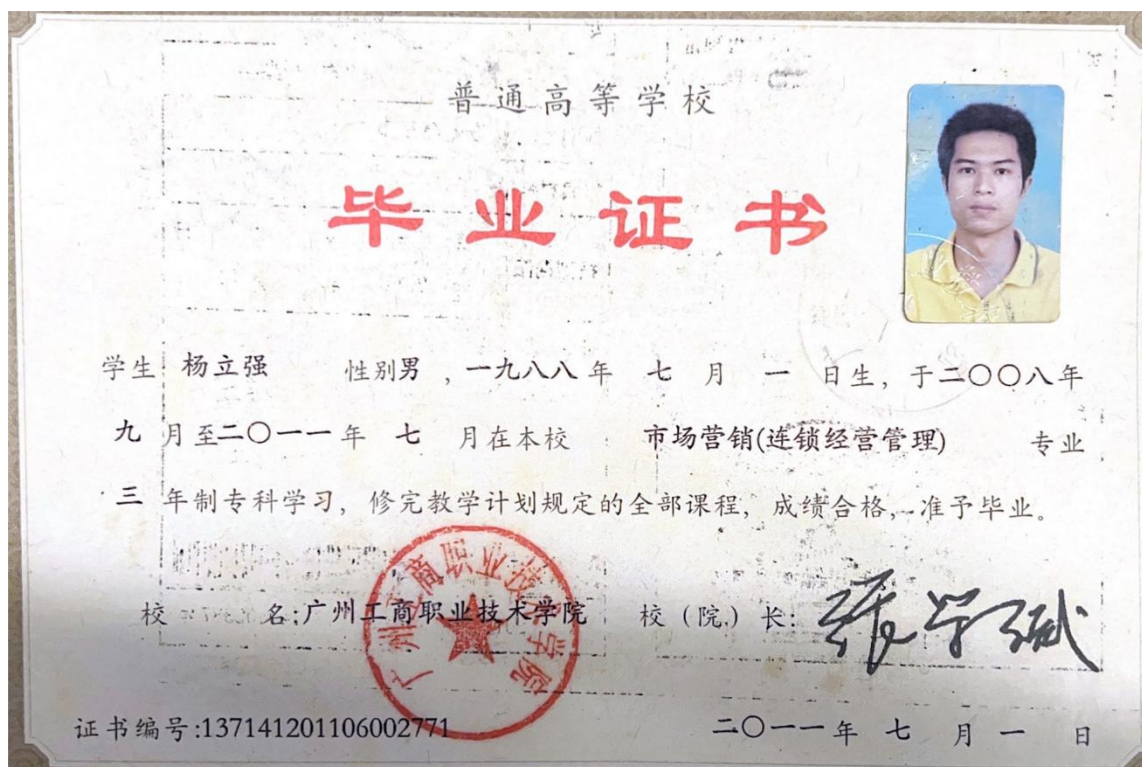 普通高等学校
毕业证书
学生 杨立强 性别男 ,一九八八年 七 月 一 日生, 于二〇〇八年
九 月至二〇一一年 七 月在本校 市场营销(连锁经营管理) 专业
三 年制专科学习, 修完教学计划规定的全部课程, 成绩合格, 准予毕业。
校 名:广州工商职业技术学院 校(院)长:
广州工商职业技术学院
证书编号:137141201106002771 二〇一一年 七 月 一 日